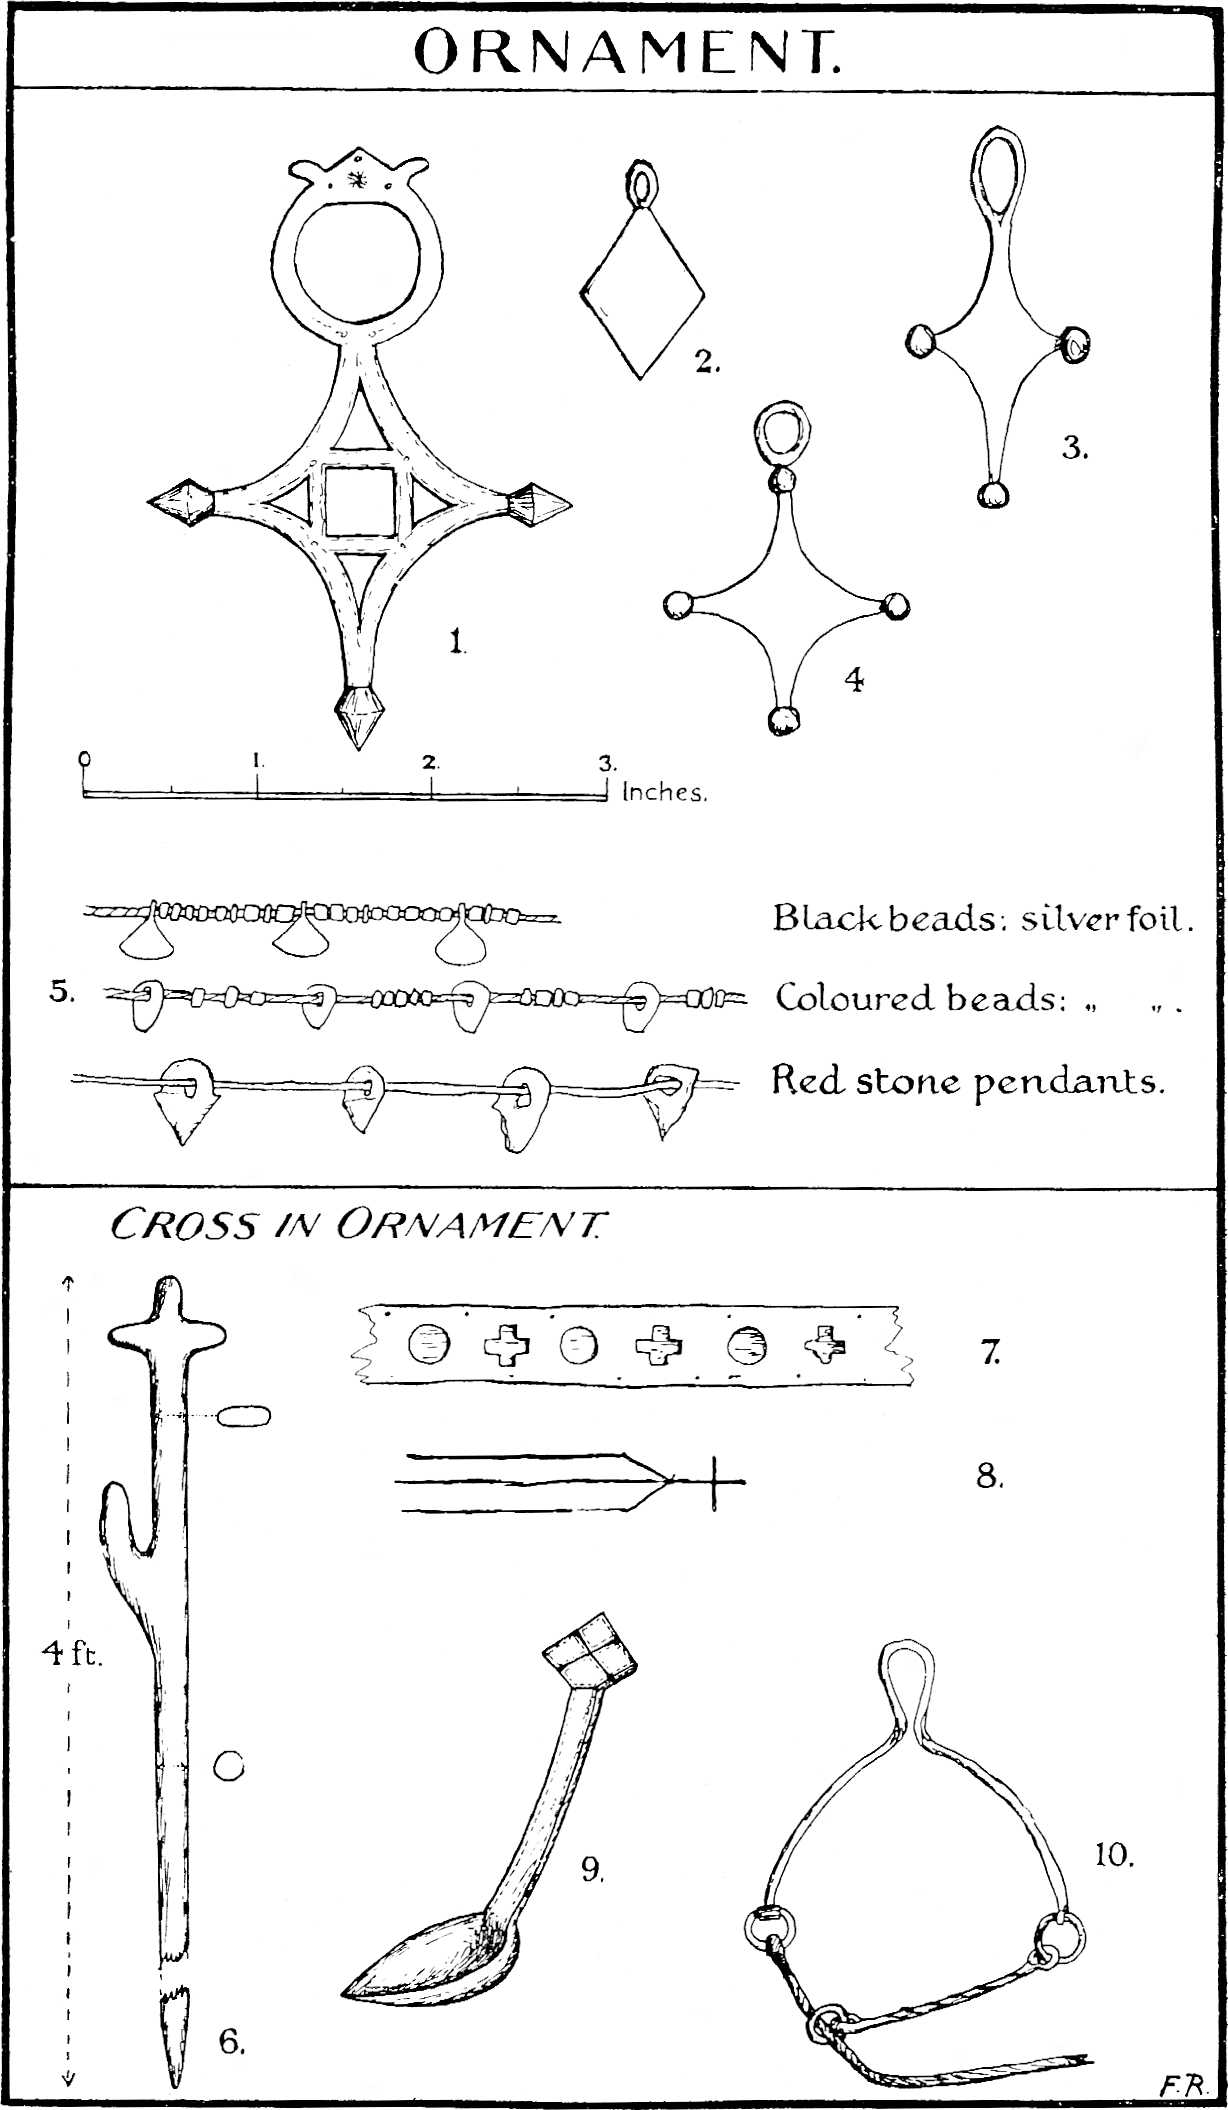 ORNAMENT.
1.
2.
3.
4
0 1. 2. 3. Inches.
5.
Black beads: silver foil.
Coloured beads: „ „ .
Red stone pendants.
CROSS IN ORNAMENT.
4 ft.
6.
7.
8.
9.
10.
F.R.